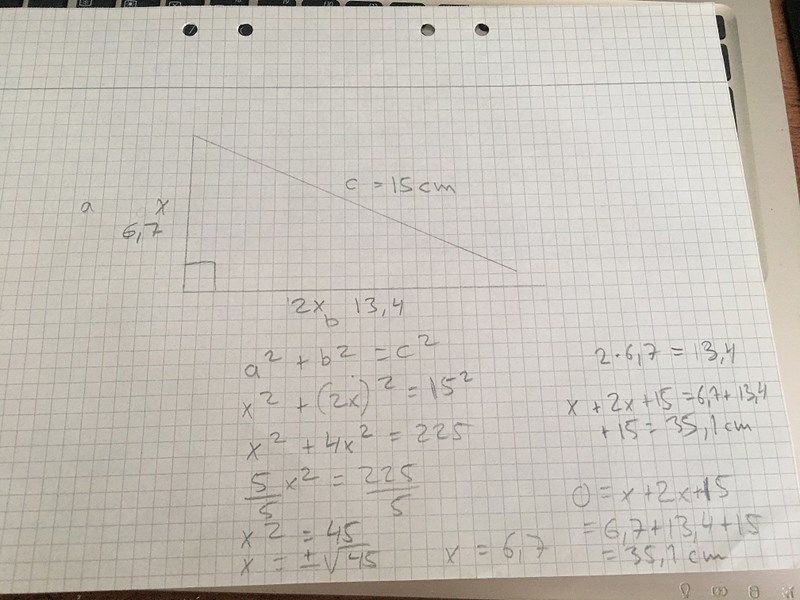 c = 15 cm
a x
6,7
2x 13,4
b
a² + b² = c²
x² + (2x)² = 15²
x² + 4x² = 225
5/5 x² = 225/5
x² = 45
x = ±√45
x = 6,7
2·6,7 = 13,4
x + 2x + 15 = 6,7 + 13,4
+ 15 = 35,1 cm
O = x + 2x + 15
= 6,7 + 13,4 + 15
= 35,1 cm